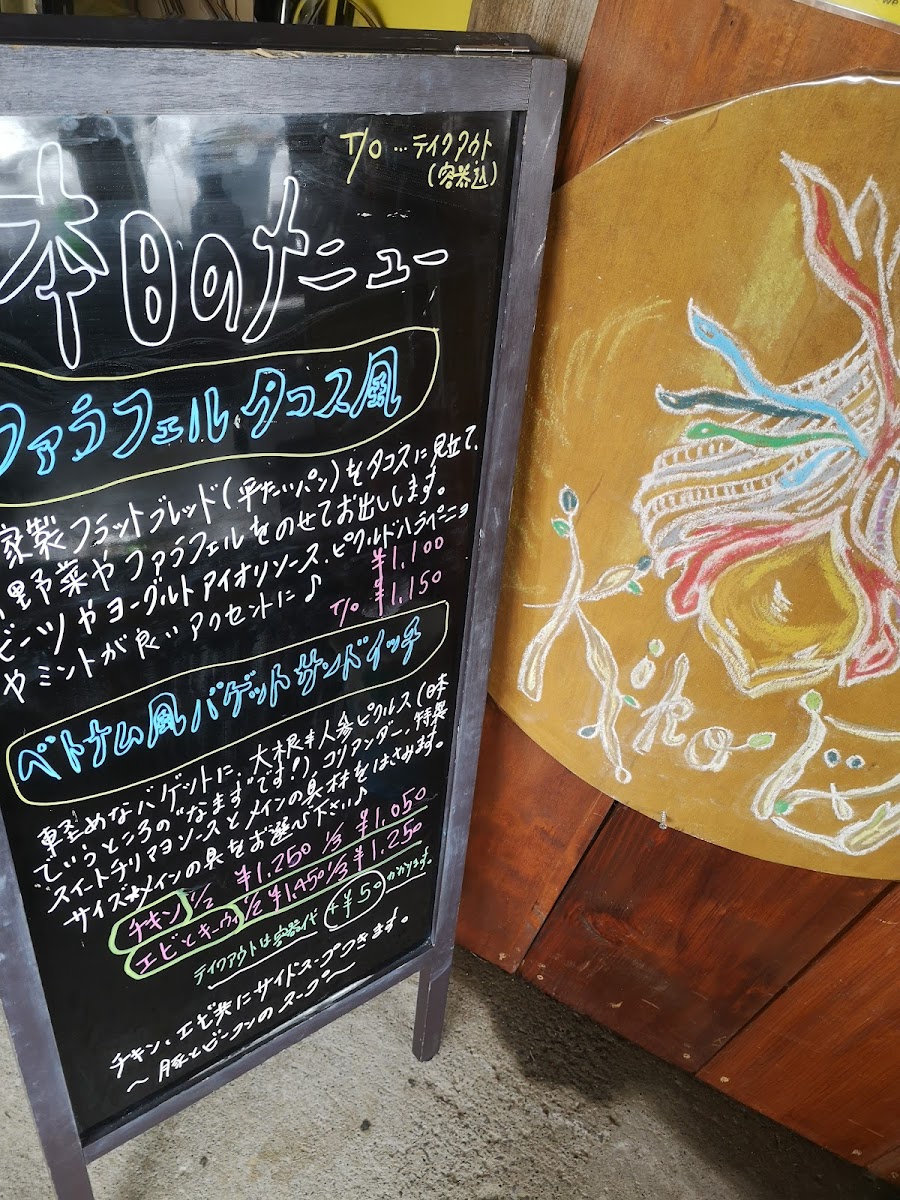 T/O…テイクアウト
(容器込)
本日のメニュー
ファラフェルタコス風
家製フラットブレッド(平たいパン)をタコスに見立て、
野菜やファラフェルをのせてお出しします。
ビーツやヨーグルトアイオリソース、ピクルドハラペーニョ
やミントが良いアクセントに♪
¥1,100
T/O ¥1,150
ベトナム風バゲットサンドイッチ
軽めなバゲットに、大根と人参ピクルス(日本
でいうところの"なます"です!)コリアンダー、特製
スイートチリマヨソースとメインの具材をはさみます。
サイズ、メインの具をお選び下さい♪
チキン 1/2 ¥1,250 1/3 ¥1,050
エビとキーウィ 1/2 ¥1,450 1/3 ¥1,250
テイクアウトは容器代+¥50かかります。
チキン、エビ共にサイドスープつきます。
〜豚とビーコンのスープ〜
Kiko